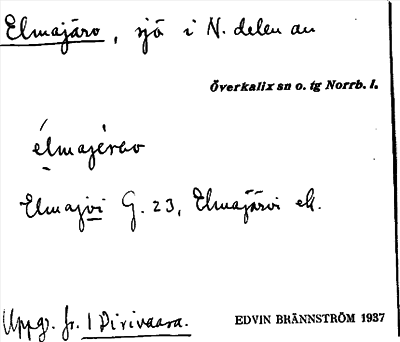 Elmajärv, sjö i N. delen av
Överkalix sn o. tg Norrb. l.
élmajérav
Elmajvi G. 23, Elmajärvi ek.
Uppg. fr. 1 Pirivaara.
EDVIN BRÄNNSTRÖM 1937